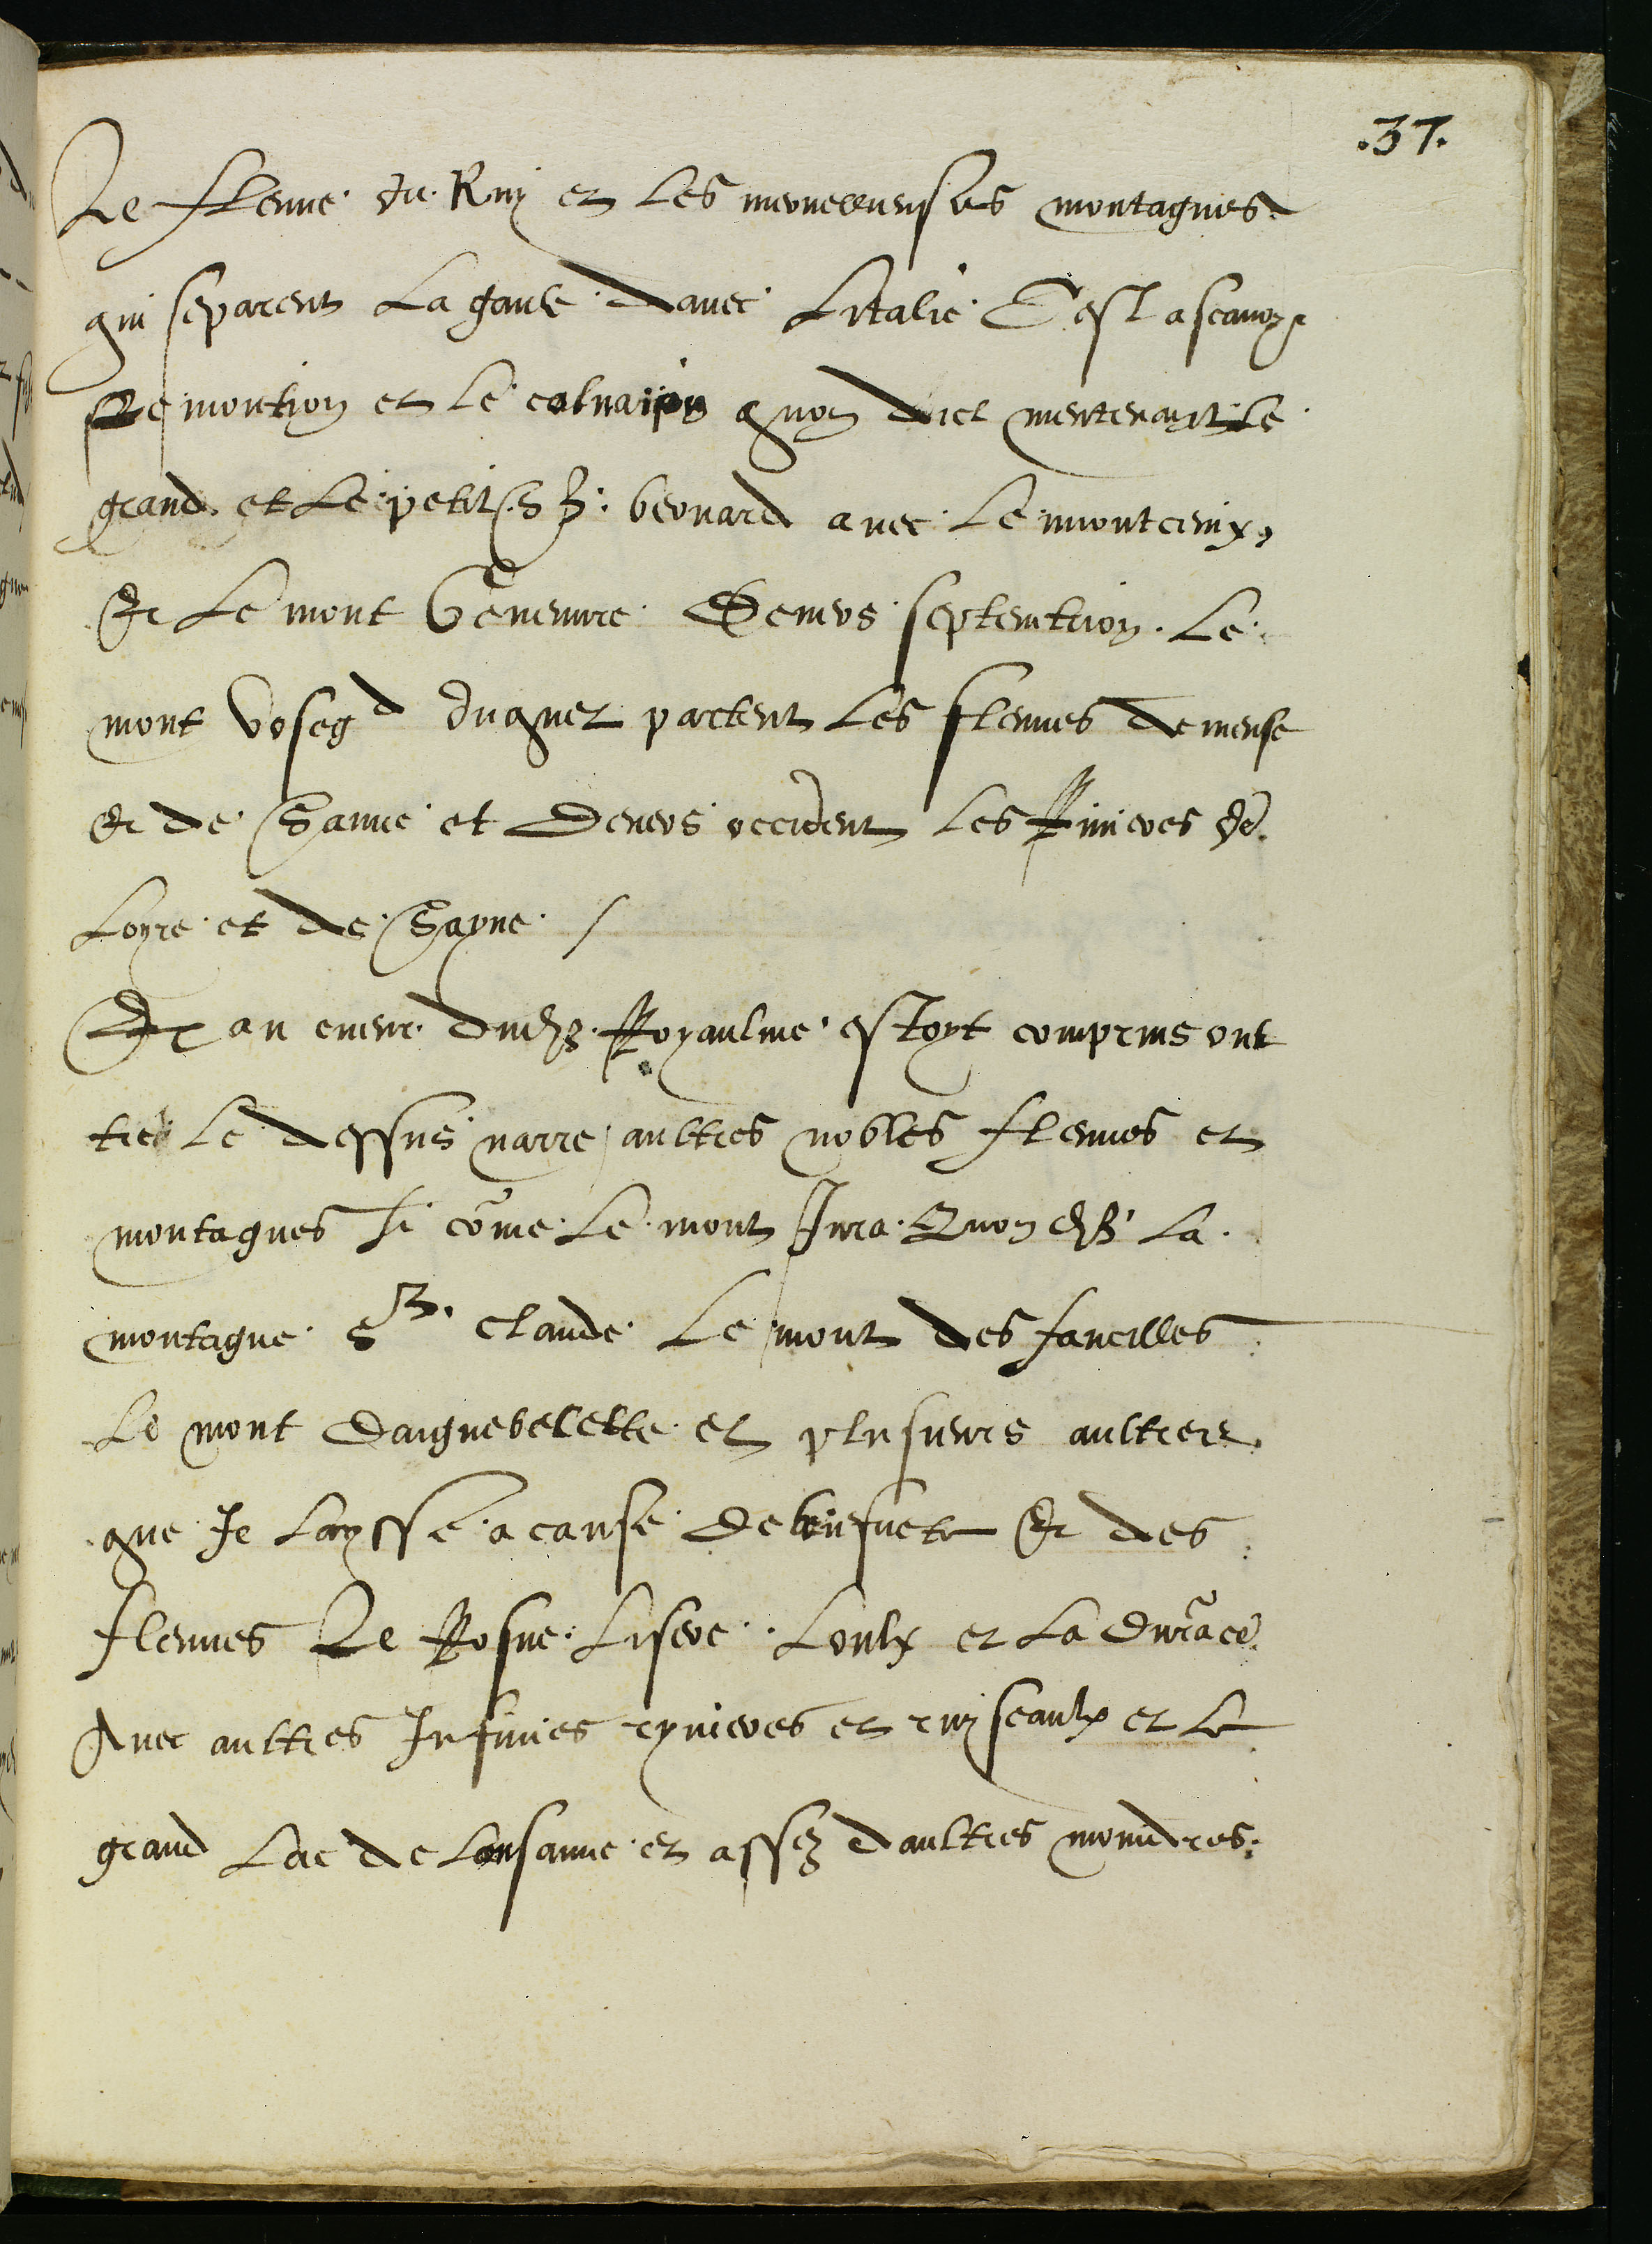 .37.
Le fleuve du Rin et les merveilleuses montagnes
qui separent La gaule davec Litalie Cest ascavoyr
Le montion et le colnaion quon dict mentenant le
grand et Le petit St bernard avec Le montcenix,
Et Le mont Genevre Devers septentrion Le
mont Voseg d duquel partent les fleuves de meuse
Et de Saune et Devers occident les Rivieres de
Loyre et de Sayne /
Et au cueur dudit Royaulme estoyt comprins oul
tre le dessus narre aultres nobles fleuves et
montagnes si côme le mont Jura Quon dit la
montagne St claude Le mont des faucilles
Le mont daiguebelette et plusieurs aultres
que Je laysse a cause de briefvete Et des
fleuves Le Rosne Lisere Loulx et La durãce
Avec aultres Infinies ryvieres et ruyseaulx et le
grand Lac de Lousanne et assez daultres moindres